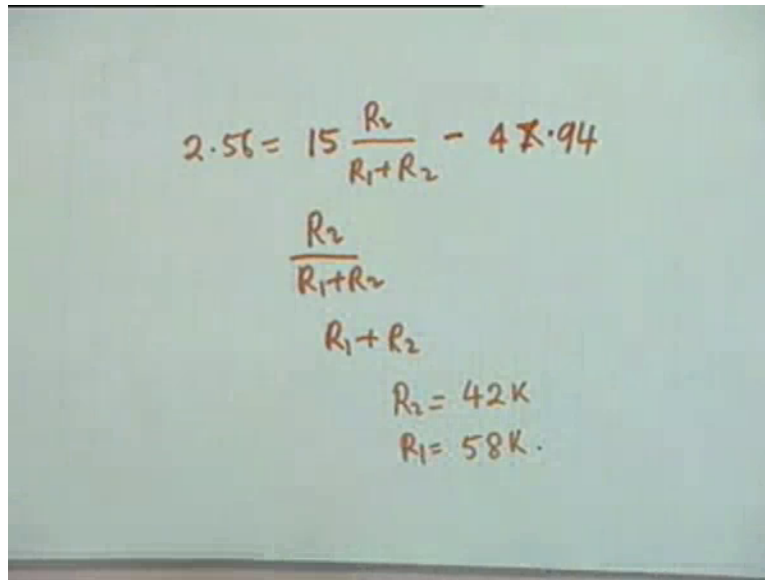 2.56 = 15 R₂/(R₁+R₂) - 4.94
R₂/(R₁+R₂)
R₁+R₂
R₂ = 42K
R₁ = 58K.